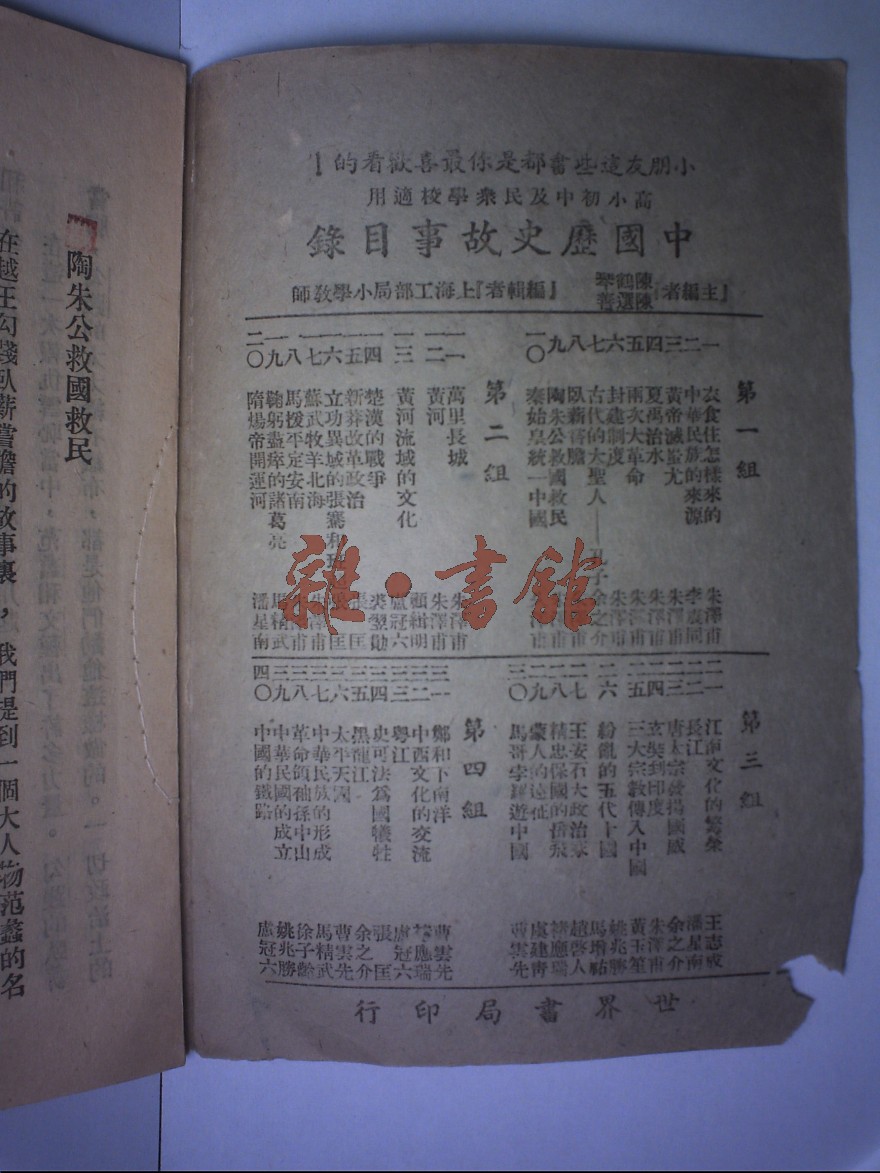 小朋友這些書都是你最喜歡看的！
高小初中及民衆學校適用
中國歷史故事目錄
『主編者』陳鶴琴 陳選善 『編輯者』上海工部局小學教師
第一組
一 衣食住怎樣來的 朱澤甫
二 中華民族的來源
三 黃帝滅蚩尤 朱澤甫
四 夏禹治水 朱澤甫
五 兩次大革命 朱澤甫
六 封建制度 朱澤甫
七 古代的大聖人——孔子 余之介
八 臥薪嘗膽
九 陶朱公救國救民
一〇 秦始皇統一中國
第二組
一一 萬里長城 朱澤甫
一二 黃河 朱澤甫
一三 黃河流域的文化 顧緝明
一四 楚漢的戰爭 盧冠六
一五 新莽改革政治 裘翌勛
一六 立功異域的張騫和班 張匡
一七 蘇武牧羊北海 張匡
一八 馬援平定安南 朱澤甫
一九 鞠躬盡瘁的諸葛亮 馬精武
二〇 隋煬帝開運河 潘星南
第三組
二一 江南文化的繁榮 王志成
二二 長江 潘星南
二三 唐太宗發揚國威 余之介
二四 玄奘到印度 朱澤甫
二五 三大宗教傳入中國 黃玉笙
二六 紛亂的五代十國 姚兆勝
二七 王安石大政治家
二八 精忠保國的岳飛
二九 蒙人的遠征
三〇 馬哥孛羅遊中國 曹雲先
第四組
三一 鄭和下南洋 曹雲先
三二 中西文化的交流 褚應瑞
三三 粵江 盧冠六
三四 史可法爲國犧牲 張匡
三五 黑龍江 余之介
三六 太平天國 曹雲先
三七 中華民族的形成 馬精武
三八 革命領袖孫中山 徐子齡
三九 中華民國的成立 姚兆勝
四〇 中國的鐵路 盧冠六
世界書局印行
雜·書館
陶朱公救國救民
在越王勾踐臥薪嘗膽的故事裏，我們提到一個大人物范蠡的名